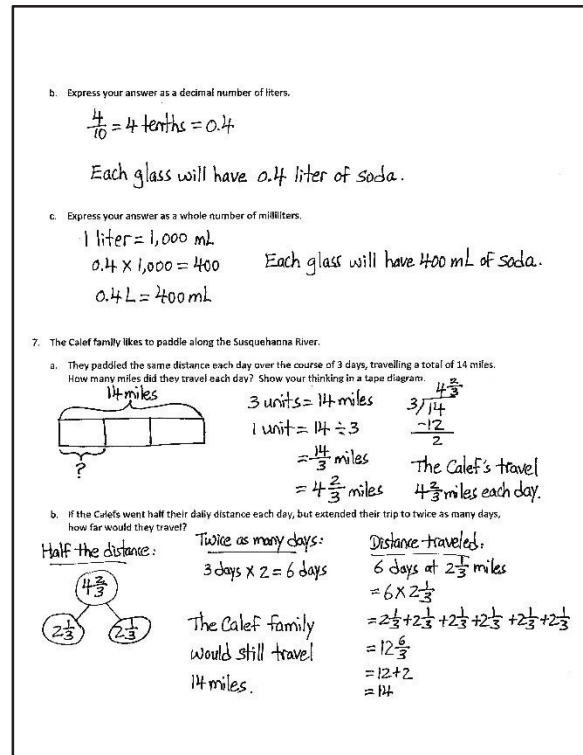 b. Express your answer as a decimal number of liters.
4/10 = 4 tenths = 0.4
Each glass will have 0.4 liter of soda.
c. Express your answer as a whole number of milliliters.
1 liter = 1,000 mL
0.4 x 1,000 = 400
0.4 L = 400 mL
Each glass will have 400 mL of soda.
7. The Calef family likes to paddle along the Susquehanna River.
a. They paddled the same distance each day over the course of 3 days, travelling a total of 14 miles.
How many miles did they travel each day? Show your thinking in a tape diagram.
14 miles
?
3 units = 14 miles
1 unit = 14 ÷ 3
= 14/3 miles
= 4 2/3 miles
4 2/3
3/14
-12
2
The Calef's travel
4 2/3 miles each day.
b. If the Calefs went half their daily distance each day, but extended their trip to twice as many days,
how far would they travel?
Half the distance:
4 2/3
2 1/3 2 1/3
Twice as many days:
3 days x 2 = 6 days
The Calef family
would still travel
14 miles.
Distance traveled:
6 days at 2 1/3 miles
= 6 x 2 1/3
= 2 1/3 + 2 1/3 + 2 1/3 + 2 1/3 + 2 1/3 + 2 1/3
= 12 6/3
= 12 + 2
= 14